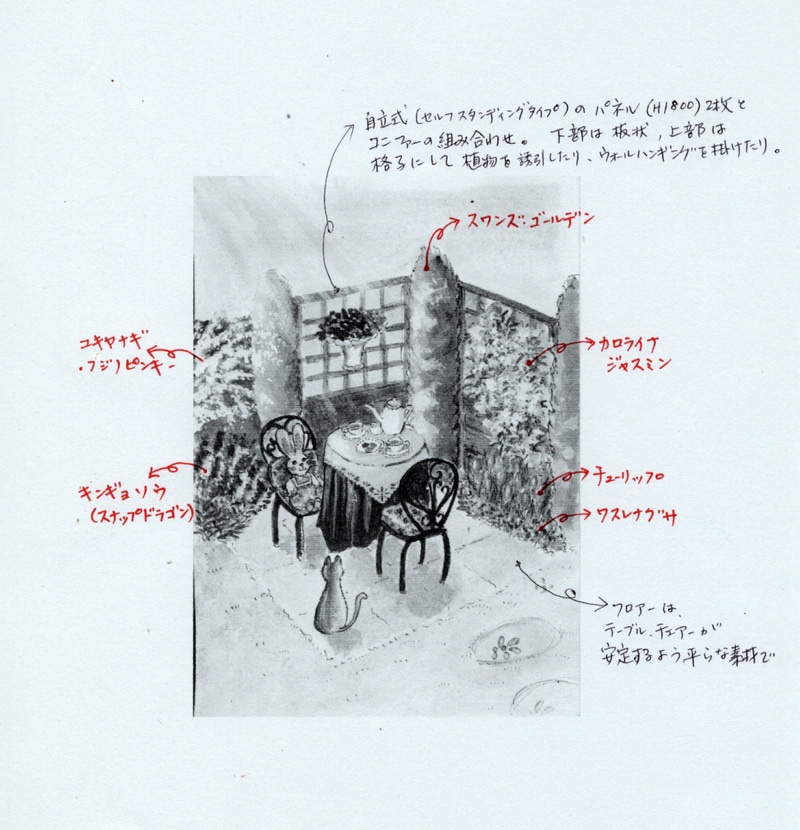 自立式(セルフスタンディングタイプ)の パネル (H1800) 2枚と
コニファーの組み合わせ。 下部は 板状, 上部は
格子にして 植物を誘引したり、ウォールハンギングを掛けたり。
スワンズ・ゴールデン
ユキヤナギ
・フジノピンキー
カロライナ
ジャスミン
キンギョソウ
(スナップドラゴン)
チューリップ
ワスレナグサ
フロアーは、
テーブル、チェアーが
安定するよう平らな素材で